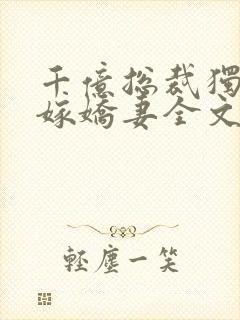 千億總裁獨
嫁嬌妻全文
輕塵一笑